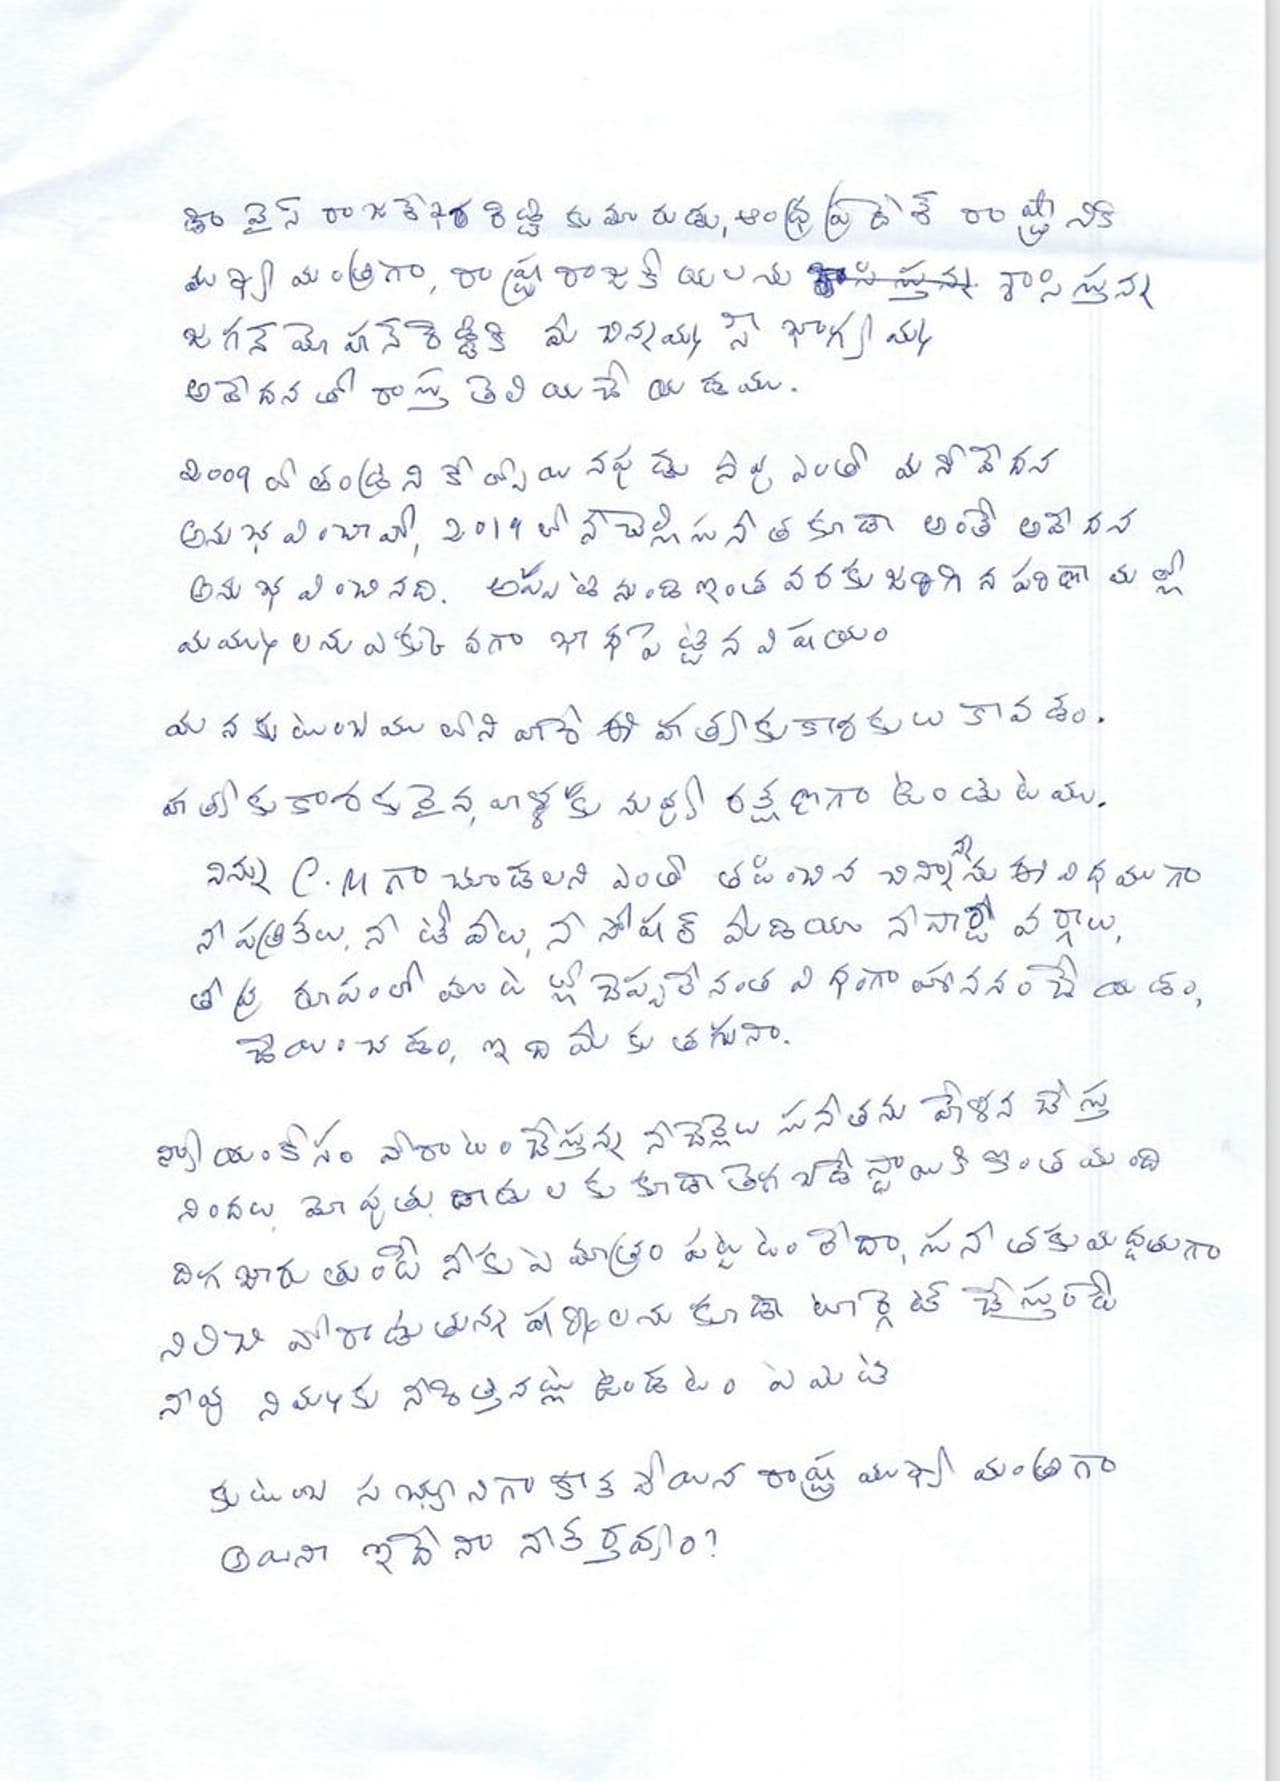 డా౹౹ వైస్ రాజశేఖర రెడ్డి కుమారుడు, ఆంధ్రప్రదేశ్ రాష్ట్రానికి
ముఖ్యమంత్రిగా, రాష్ట్ర రాజకీయలను శాసిస్తున్న
జగన్ మోహన్ రెడ్డికి మీ చిన్నమ్మ సౌ భాగ్యమ్మ
ఆవేదనతో రాస్తు తెలియచేయడము.
2009 లో తండ్రిని కోల్పోయినపుడు నీవు ఎంతో మనోవేదన
అనుభవించావో, 2019 లో నీ చెల్లి సునీత కూడా అంతే ఆవేదన
అనుభవించినది. అప్పటి నుండి ఇంత వరకు జరిగిన పరిణామాల్లో
మమ్మలను ఎక్కువగా భాధపెట్టిన విషయం
మన కుటుంబములోని వారే ఈ హత్యకు కారకులు కావడం.
హత్యకు కారకులైన వాళ్ళకు నువ్వు రక్షణగా ఉండుటము.
నిన్ను C.M గా చూడలని ఎంతో తపించిన చిన్నాన్నను ఈ విధముగా
నీ పత్రికలు, నీ టీవీలు, నీ సోషల్ మీడియా నీ పార్టీ వర్గాలు,
తీవ్ర రూపంలో మాటల్లో చెప్పలేనంత విధంగా హననం చేయడం,
చేయించడం, ఇది మీకు తగునా.
న్యాయం కోసం పోరాటం చేస్తున్న నీ చెల్లెలు సునీతను హేళన చేస్తు
నిందలు మోపుతు దాడులకు కూడా తెగబడే స్ధాయికి కొంతమంది
దిగజారుతుంటే నీకు ఏ మాత్రం పట్టటం లేదా, సునీతకు మద్దతుగా
నిలిచి పోరాడుతున్న షర్మిలను కూడా టార్గెట్ చేస్తుంటే
నీవు నిమ్మకు నీరెత్తనట్లు ఉండటం ఏమిటి
కుటుంబ సభ్యునిగా కాక పోయిన రాష్ట్ర ముఖ్యమంత్రిగా
అయినా ఇదేనా నీ కర్తవ్యం?